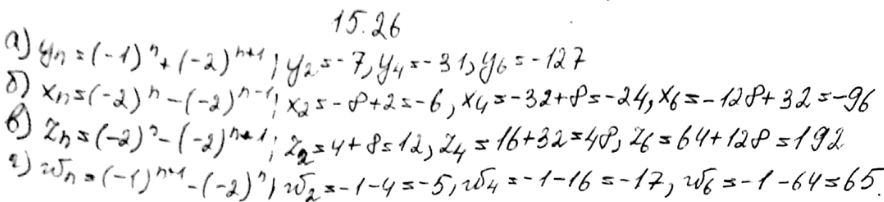 15.26
а) yₙ = (-1)ⁿ + (-2)ⁿ⁺¹; y₂ = -7, y₄ = -31, y₆ = -127
б) xₙ = (-2)ⁿ - (-2)ⁿ⁻¹; x₂ = -8+2 = -6, x₄ = -32+8 = -24, x₆ = -128+32 = -96
в) zₙ = (-2)ⁿ - (-2)ⁿ⁺¹; z₂ = 4+8 = 12, z₄ = 16+32 = 48, z₆ = 64+128 = 192
г) wₙ = (-1)ⁿ⁺¹ - (-2)ⁿ; w₂ = -1-4 = -5, w₄ = -1-16 = -17, w₆ = -1-64 = 65.